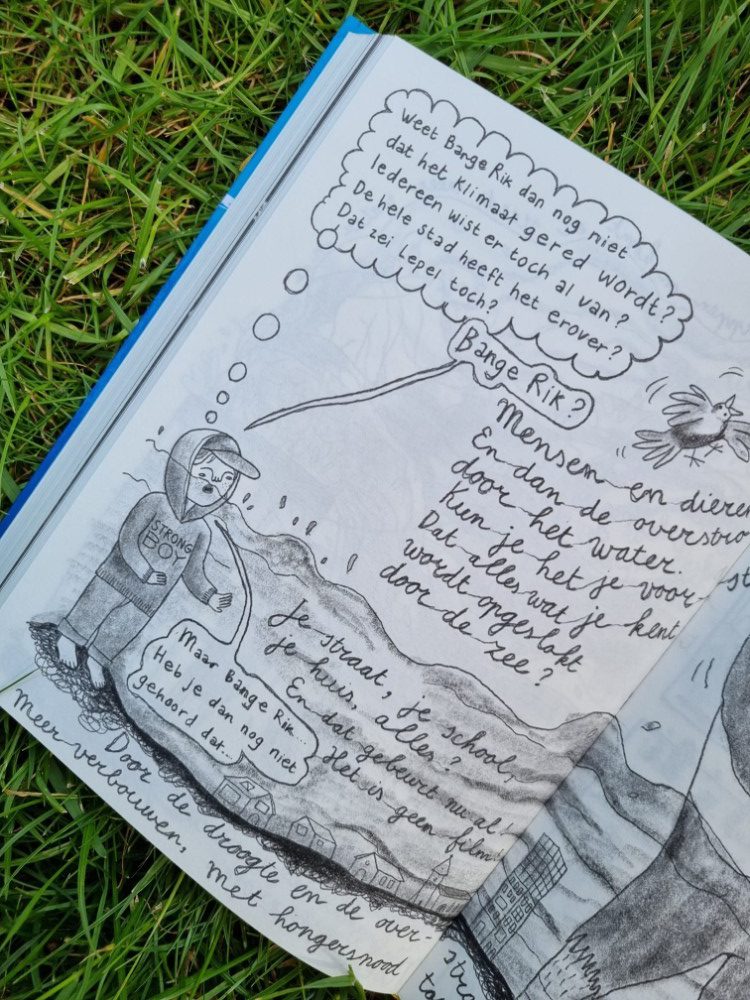 Weet Bange Rik dan nog niet
dat het klimaat gered wordt?
Iedereen wist er toch al van?
De hele stad heeft het erover?
Dat zei Lepel toch?
Bange Rik?
Mensen en dieren
En dan de overstro
door het water.
Kun je het je voor-
Dat alles wat je kent
wordt opgeslokt
door de zee?
STRONG
BOY
Je straat, je school,
je huis, alles?
En dat gebeurt nu al!
Het is geen film!
Maar Bange Rik...
Heb je dan nog niet
gehoord dat...
Door de droogte en de over-
meer verbouwen, met hongersnood